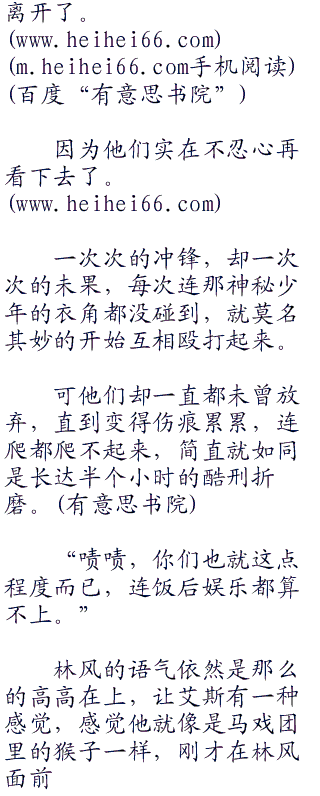 离开了。
(www.heihei66.com)
(m.heihei66.com手机阅读)
(百度“有意思书院”)
因为他们实在不忍心再
看下去了。
(www.heihei66.com)
一次次的冲锋，却一次
次的未果，每次连那神秘少
年的衣角都没碰到，就莫名
其妙的开始互相殴打起来。
可他们却一直都未曾放
弃，直到变得伤痕累累，连
爬都爬不起来，简直就如同
是长达半个小时的酷刑折
磨。(有意思书院)
“啧啧，你们也就这点
程度而已，连饭后娱乐都算
不上。”
林风的语气依然是那么
的高高在上，让艾斯有一种
感觉，感觉他就像是马戏团
里的猴子一样，刚才在林风
面前